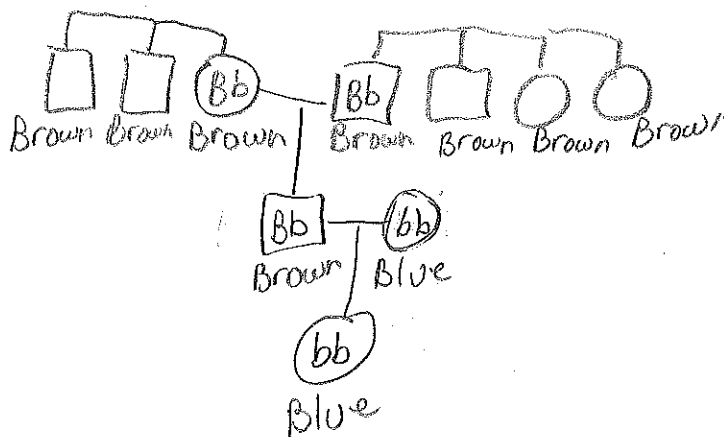 Bb Bb
Brown Brown Brown Brown Brown Brown Brown
Bb bb
Brown Blue
bb
Blue